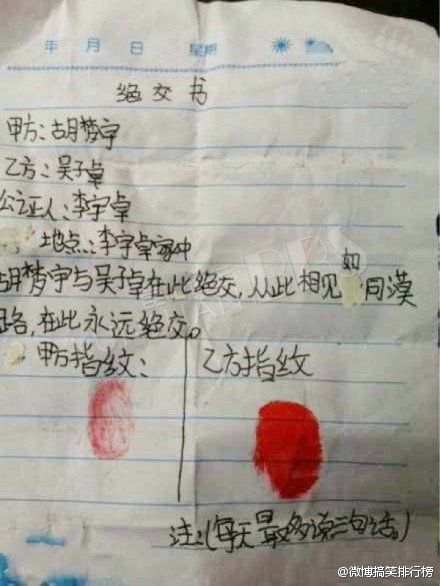 年 月 日 星期
绝交书
甲方:胡梦宇
乙方:吴子卓
公证人:李宇卓
地点:李宇卓家中
胡梦宇与吴子卓在此绝交,从此相见如同漠
路,在此永远绝交。
甲方指纹:
乙方指纹
注:(每天最多说三句话。)
@微博搞笑排行榜